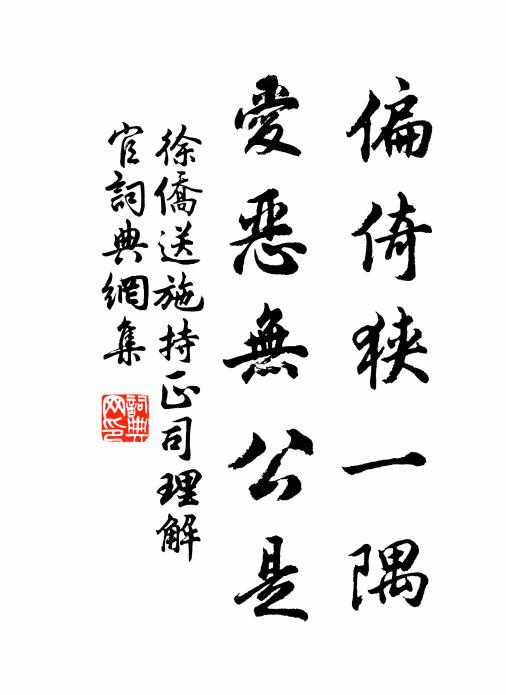 偏倚狹一隅
愛惡無公是
徐僑送施持正司理解
官詞典網集
詞典網印